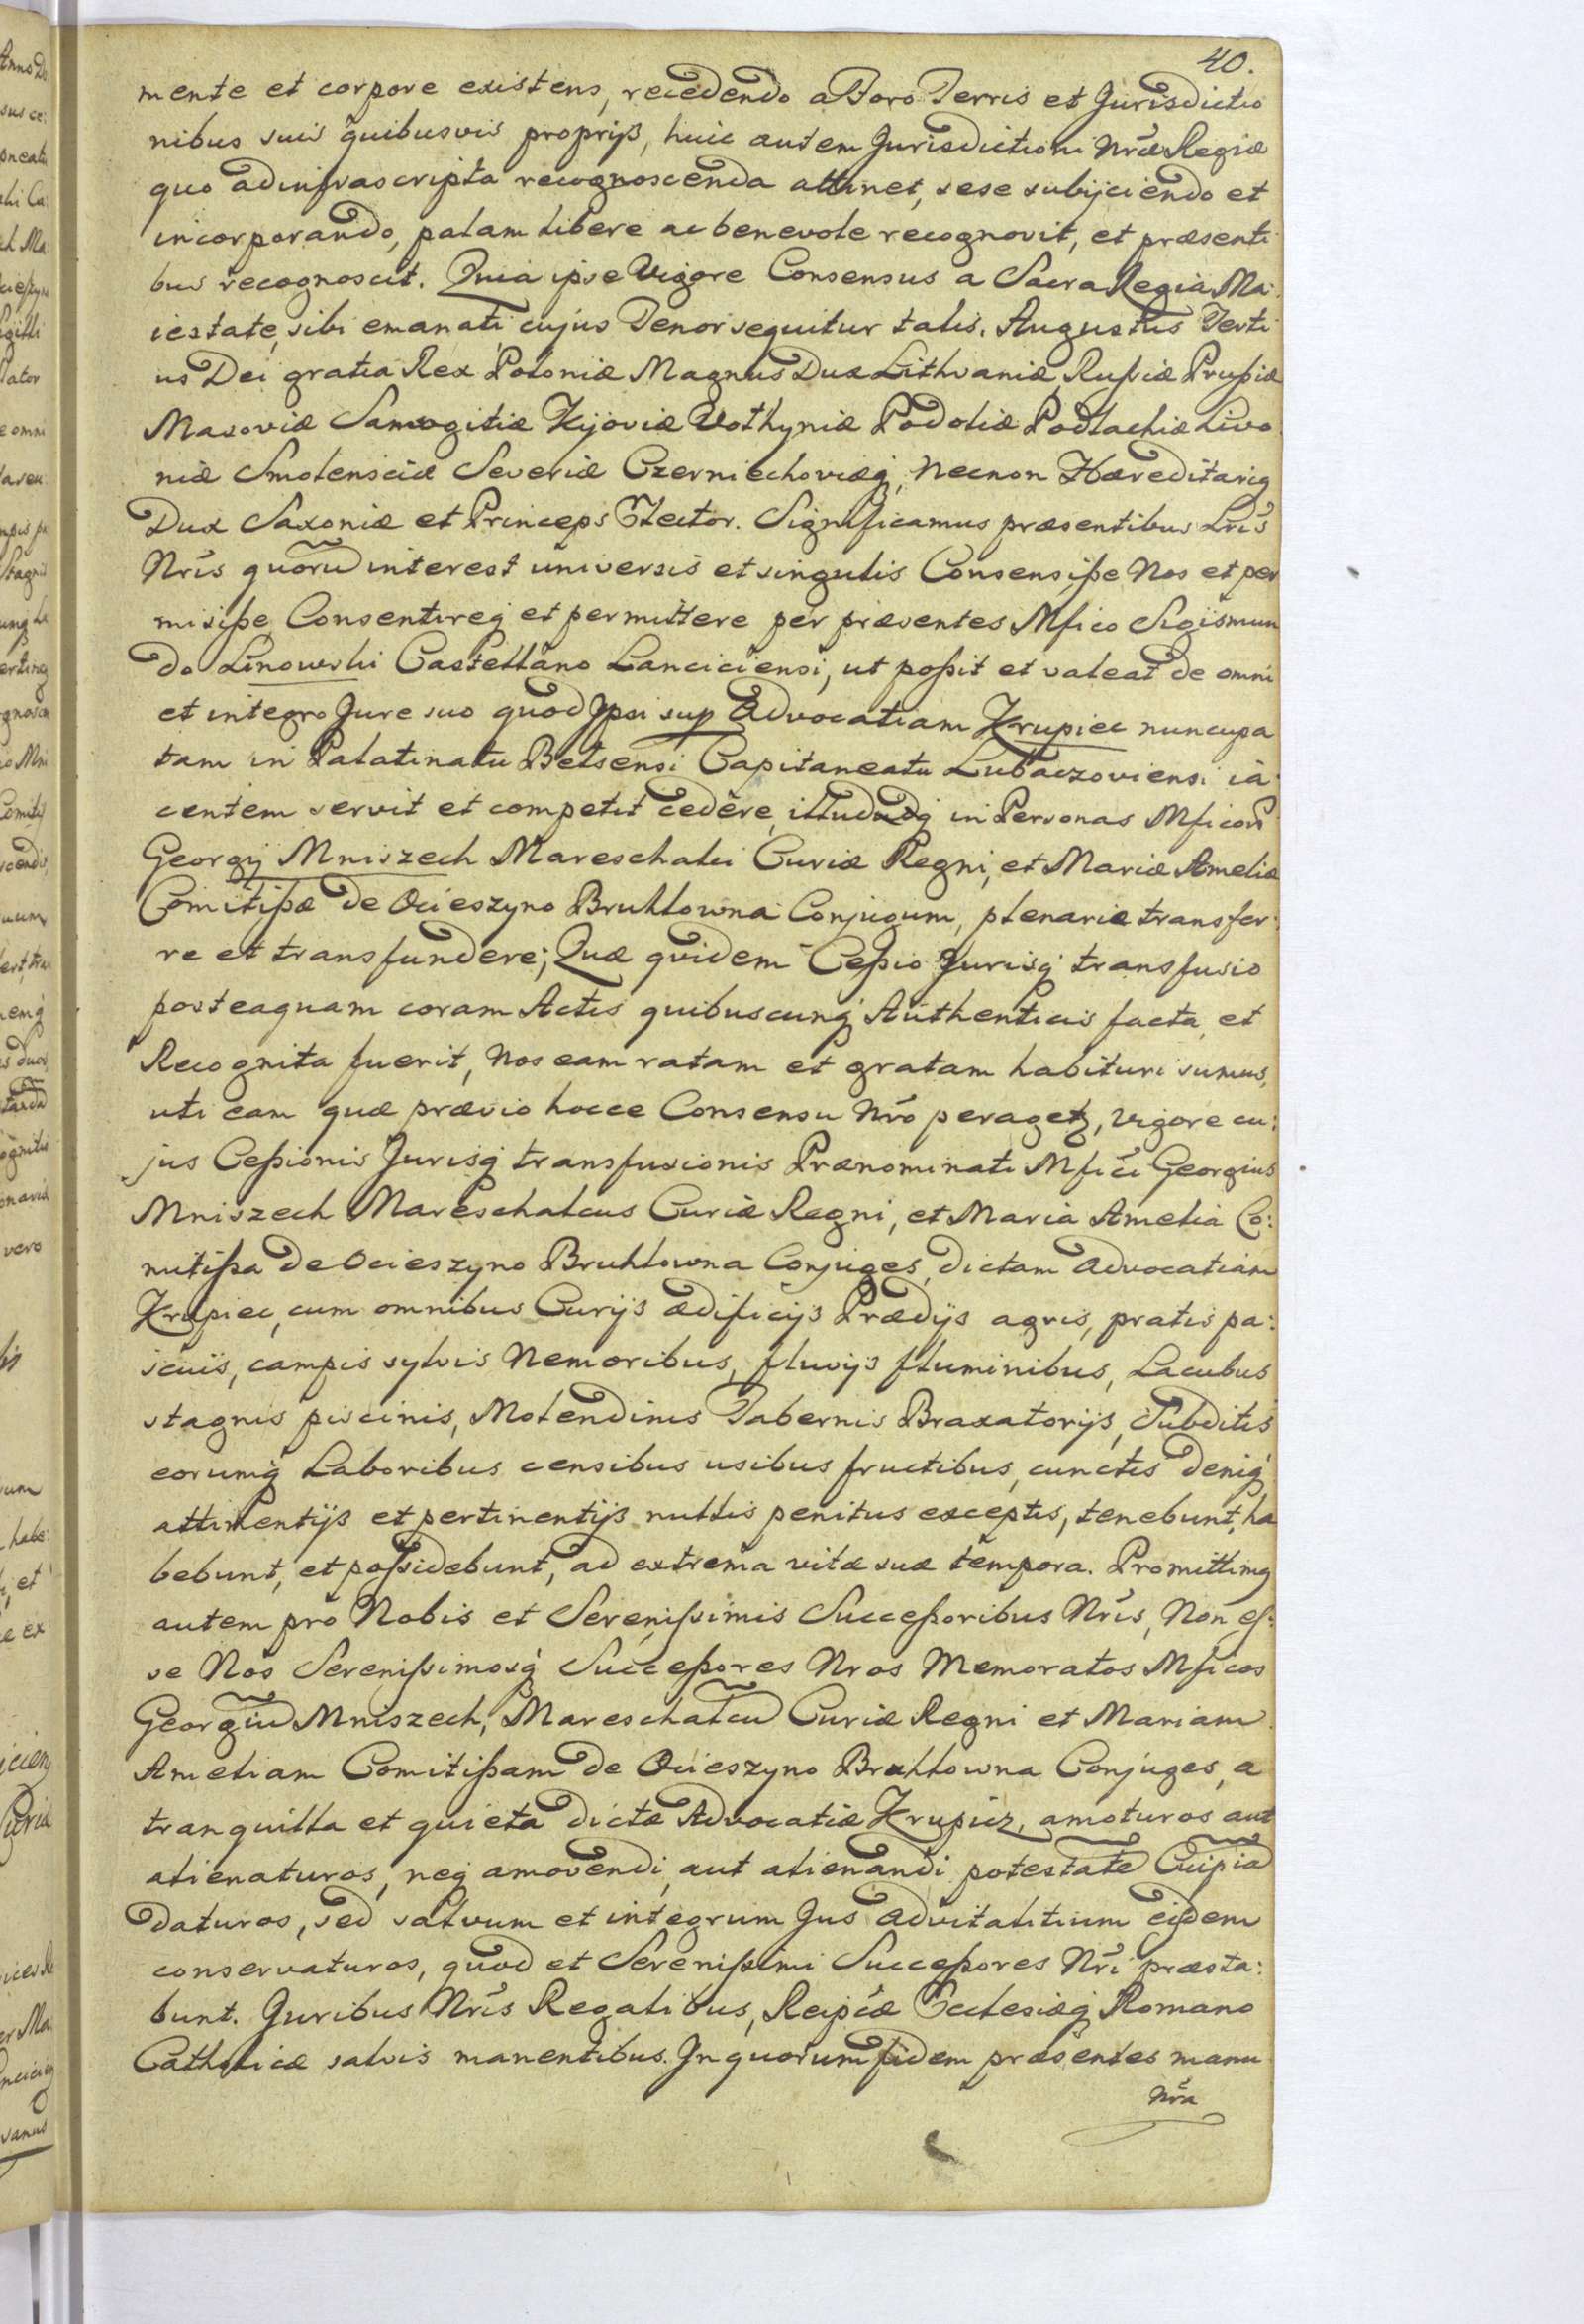 40.
mente et corpore existens, recedendo a Foro Terris et Jurisdictio
nibus suis quibusvis proprijs, huic autem Jurisdictioni Nræ Regiæ
quo ad infrascripta recognoscenda attinet, sese subijciendo et
incorporando, palam libere ac benevole recognovit, et præsenti
bus recognoscit. Quia ipse Vigore Consensus a Sacra Regia Ma:
iestate, sibi emanati cujus Tenor sequitur talis. Augustus Terti
us Dei gratia Rex Poloniæ Magnus Dux Lithvaniæ, Rußiæ Prußiæ
Masoviæ Samogitiæ Kijoviæ Volhyniæ Podoliæ Podlachiæ Livo
niæ Smolensciæ Severiæ Czerniechoviæq, Necnon Hæreditariq
Dux Saxoniæ et Princeps Elector. Significamus præsentibus Lris
Nris quorũ interest universis et singulis Consensiße Nos et per
misiße Consentireq et permittere per præsentes Mfico Sigismun
do Linowski Castellano Lanciciensi, ut poßit et valeat de omni
et integro Jure suo quod Ipsi sup Advocatiam Krupiec nuncupa
tam in Palatinatu Belsensi Capitaneatu Lubaczoviensi ia
centem servit et competit cedere, illudq in Personas Mficor
Georgij Mniszech Mareschalci Curiæ Regni, et Mariæ Ameliæ
Comitißæ de Ocieszyno Bruhlowna Conjugum, plenarie transfer
re et transfundere; Quæ qvidem Ceßio Jurisq transfusio
posteaquam coram Actis quibuscunq Authenticis facta, et
Recognita fuerit, Nos eam ratam et gratam habituri sumus,
uti eam quæ prævio hocce Consensu Nro peragetz, vigore cu:
jus Ceßionis Jurisq transfusionis Prænominati Mfici Georgius
Mniszech Mareschalcus Curiæ Regni, et Maria Amelia Co:
mitißa de Ocieszyno Bruhlowna Conjuges, dictam Advocatiam
Krupiec, cum omnibus Curijs ædificijs Prædijs agris, pratis pa:
scuis, campis sylvis Nemoribus, fluvijs fluminibus, Lacubus
stagnis piscinis, Molendinis Tabernis Braxatorijs, Subditis
eorumq Laboribus censibus usibus fructibus, cunctis deniq
attinentijs et pertinentijs nullis penitus exceptis, tenebunt, ha
bebunt, et poßidebunt, ad extrema vitæ suæ tempora. Promittimq
autem pro Nobis et Serenißimis Succeßoribus Nris, Non eß:
se Nos Serenißimosq Succeßores Nros Memoratos Mficos
Georgiũ Mniszech, Mareschalcũ Curiæ Regni et Mariam
Ameliam Comitißam de Ocieszyno Bruhlowna Conjuges, a
tranquilla et quieta dictæ Advocatiæ Krupicz, amoturos aut
alienaturos, neq amovendi, aut alienandi potestatẽ Cuipiã
daturos, sed salvum et integrum Jus advitalitium eisdem
conservaturos, quod et Serenißimi Succeßores Nri præsta:
bunt. Juribus Nris Regalibus, Reipcæ Ecclesiæq Romano
Catholicæ salvis manentibus. In quorum fidem præsentes manu
Nra